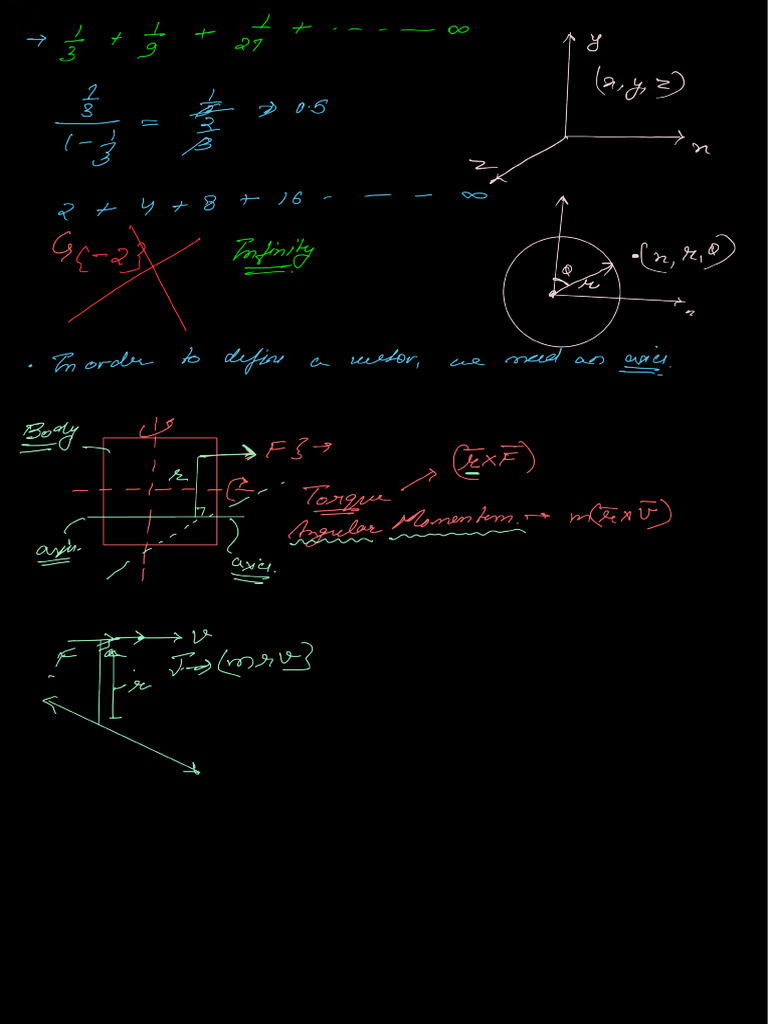 → 1/3 + 1/9 + 1/27 + ------ ∞
y
(x, y, z)
x
z
(1/3)/(1-1/3) = (1/3)/(2/3) → 0.5
2 + 4 + 8 + 16 - — — - ∞
{-2}
Infinity
θ
r
(x, r, θ)
x
• In order to define a vector, we need an axis.
Body
r
F } →
(r̄×F̄)
Torque
Angular Momentum. → m(r̄×v̄)
axis.
axis.
F
v
r
(mrv}